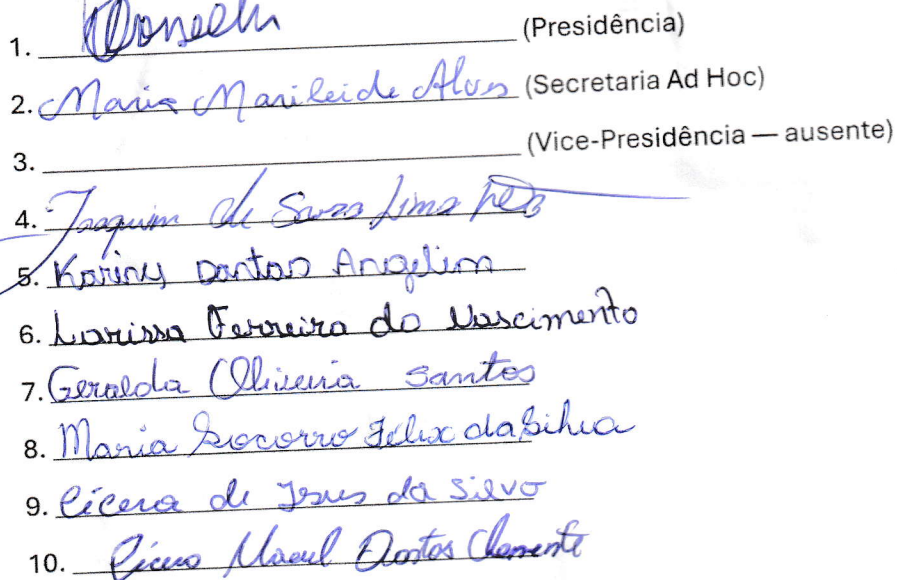 1. (Presidência)
2. Maria Marileide Alves (Secretaria Ad Hoc)
3. (Vice-Presidência — ausente)
4. Joaquim de Souza Lima
5. Kariny Dantas Angelim
6. Larissa Ferreira do Nascimento
7. Geralda Oliveira Santos
8. Maria Socorro Felix da Silva
9. Cícera de Jesus da Silva
10. Cicero Dantas Clemente